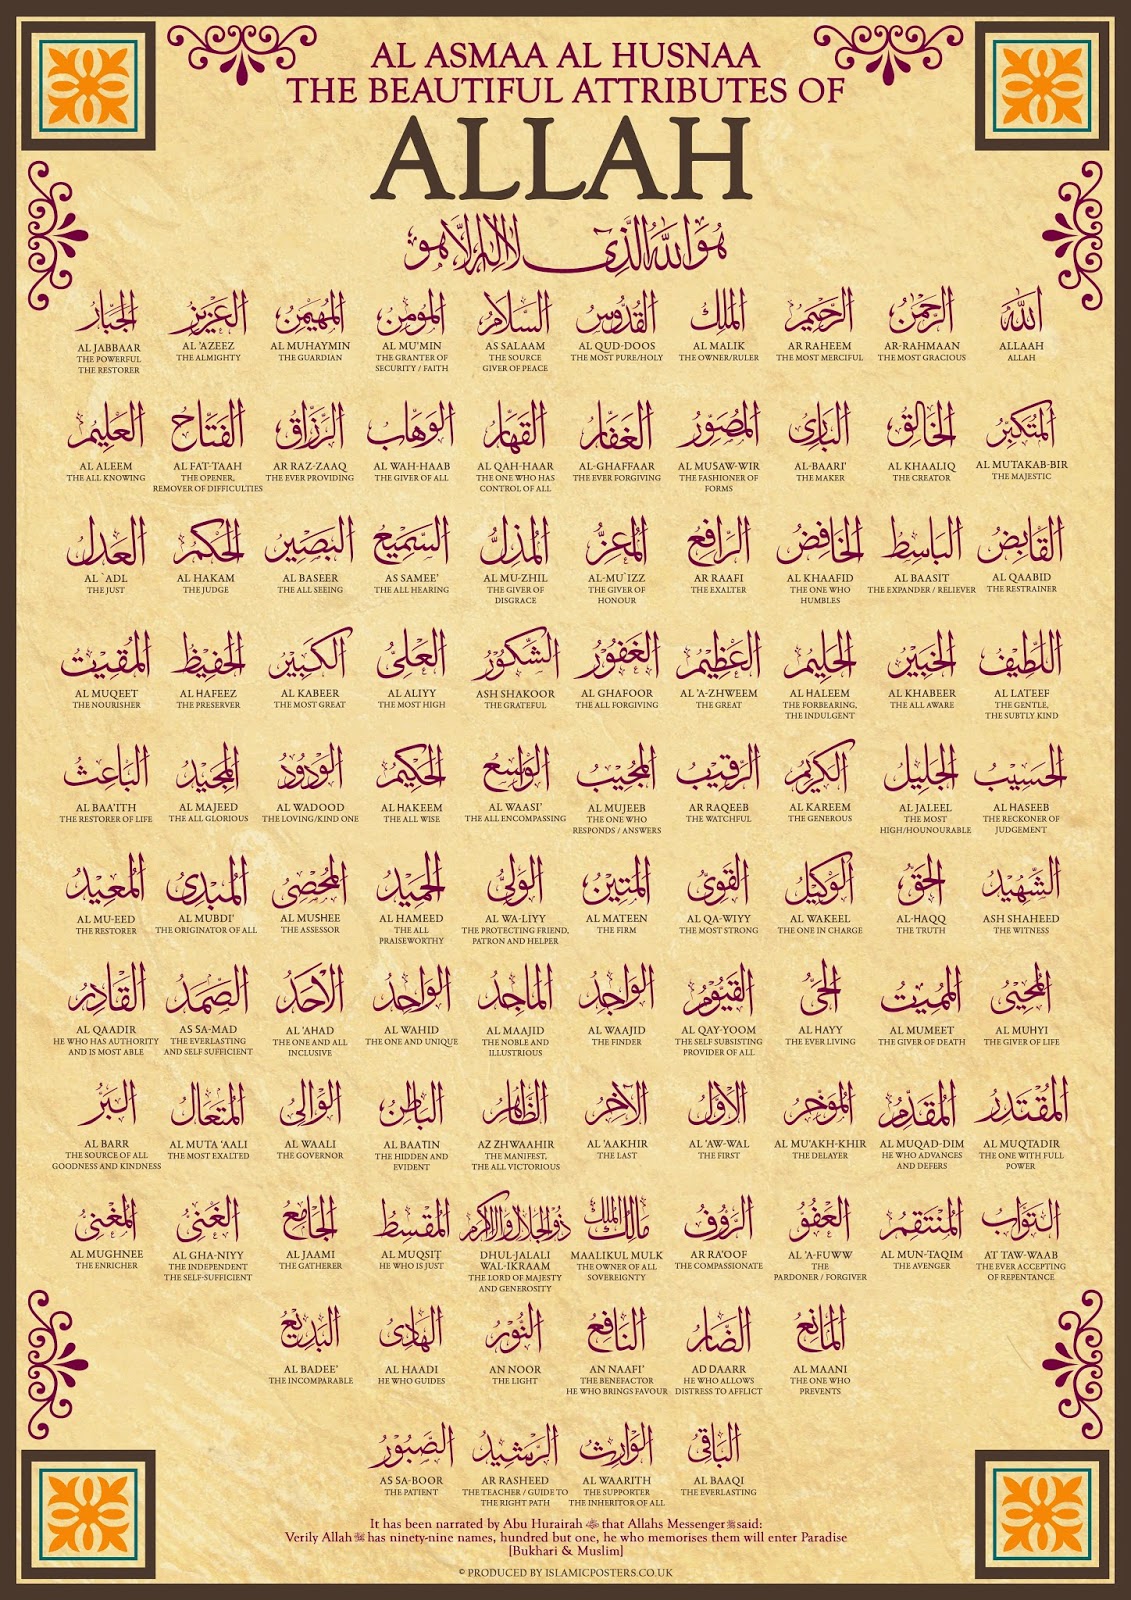 AL ASMAA AL HUSNAA
THE BEAUTIFUL ATTRIBUTES OF
ALLAH
هُوَ اللهُ الَّذِي لَا إِلٰهَ إِلَّا هُوَ
الله
ALLAAH
ALLAH
الرحمن
AR-RAHMAAN
THE MOST GRACIOUS
الرحيم
AR RAHEEM
THE MOST MERCIFUL
الملك
AL MALIK
THE OWNER/RULER
القدوس
AL QUD-DOOS
THE MOST PURE/HOLY
السلام
AS SALAAM
THE SOURCE
GIVER OF PEACE
المؤمن
AL MU'MIN
THE GRANTER OF
SECURITY / FAITH
المهيمن
AL MUHAYMIN
THE GUARDIAN
العزيز
AL 'AZEEZ
THE ALMIGHTY
الجبار
AL JABBAAR
THE POWERFUL
THE RESTORER
المتكبر
AL MUTAKAB-BIR
THE MAJESTIC
الخالق
AL KHAALIQ
THE CREATOR
البارئ
AL-BAARI'
THE MAKER
المصور
AL MUSAW-WIR
THE FASHIONER OF
FORMS
الغفار
AL-GHAFFAAR
THE EVER FORGIVING
القهار
AL QAH-HAAR
THE ONE WHO HAS
CONTROL OF ALL
الوهاب
AL WAH-HAAB
THE GIVER OF ALL
الرزاق
AR RAZ-ZAAQ
THE EVER PROVIDING
الفتاح
AL FAT-TAAH
THE OPENER,
REMOVER OF DIFFICULTIES
العليم
AL ALEEM
THE ALL KNOWING
القابض
AL QAABID
THE RESTRAINER
الباسط
AL BAASIT
THE EXPANDER / RELIEVER
الخافض
AL KHAAFID
THE ONE WHO
HUMBLES
الرافع
AR RAAFI
THE EXALTER
المعز
AL-MU`IZZ
THE GIVER OF
HONOUR
المذل
AL MU-ZHIL
THE GIVER OF
DISGRACE
السميع
AS SAMEE'
THE ALL HEARING
البصير
AL BASEER
THE ALL SEEING
الحكم
AL HAKAM
THE JUDGE
العدل
AL `ADL
THE JUST
اللطيف
AL LATEEF
THE GENTLE,
THE SUBTLY KIND
الخبير
AL KHABEER
THE ALL AWARE
الحليم
AL HALEEM
THE FORBEARING,
THE INDULGENT
العظيم
AL 'A-ZHWEEM
THE GREAT
الغفور
AL GHAFOOR
THE ALL FORGIVING
الشكور
ASH SHAKOOR
THE GRATEFUL
العلي
AL ALIYY
THE MOST HIGH
الكبير
AL KABEER
THE MOST GREAT
الحفيظ
AL HAFEEZ
THE PRESERVER
المقيت
AL MUQEET
THE NOURISHER
الحسيب
AL HASEEB
THE RECKONER OF
JUDGEMENT
الجليل
AL JALEEL
THE MOST
HIGH/HOUNOURABLE
الكريم
AL KAREEM
THE GENEROUS
الرقيب
AR RAQEEB
THE WATCHFUL
المجيب
AL MUJEEB
THE ONE WHO
RESPONDS / ANSWERS
الواسع
AL WAASI'
THE ALL ENCOMPASSING
الحكيم
AL HAKEEM
THE ALL WISE
الودود
AL WADOOD
THE LOVING/KIND ONE
المجيد
AL MAJEED
THE ALL GLORIOUS
الباعث
AL BAA'ITH
THE RESTORER OF LIFE
الشهيد
ASH SHAHEED
THE WITNESS
الحق
AL-HAQQ
THE TRUTH
الوكيل
AL WAKEEL
THE ONE IN CHARGE
القوي
AL QA-WIYY
THE MOST STRONG
المتين
AL MATEEN
THE FIRM
الولي
AL WA-LIYY
THE PROTECTING FRIEND,
PATRON AND HELPER
الحميد
AL HAMEED
THE ALL
PRAISEWORTHY
المحصى
AL MUSHEE
THE ASSESSOR
المبدئ
AL MUBDI'
THE ORIGINATOR OF ALL
المعيد
AL MU-EED
THE RESTORER
المحيي
AL MUHYI
THE GIVER OF LIFE
المميت
AL MUMEET
THE GIVER OF DEATH
الحي
AL HAYY
THE EVER LIVING
القيوم
AL QAY-YOOM
THE SELF SUBSISTING
PROVIDER OF ALL
الواجد
AL WAAJID
THE FINDER
الماجد
AL MAAJID
THE NOBLE AND
ILLUSTRIOUS
الواحد
AL WAHID
THE ONE AND UNIQUE
الأحد
AL 'AHAD
THE ONE AND ALL
INCLUSIVE
الصمد
AS SA-MAD
THE EVERLASTING
AND SELF SUFFICIENT
القادر
AL QAADIR
HE WHO HAS AUTHORITY
AND IS MOST ABLE
المقتدر
AL MUQTADIR
THE ONE WITH FULL
POWER
المقدم
AL MUQAD-DIM
HE WHO ADVANCES
AND DEFERS
المؤخر
AL MU'AKH-KHIR
THE DELAYER
الأول
AL 'AW-WAL
THE FIRST
الآخر
AL 'AAKHIR
THE LAST
الظاهر
AZ ZHWAAHIR
THE MANIFEST,
THE ALL VICTORIOUS
الباطن
AL BAATIN
THE HIDDEN AND
EVIDENT
الوالي
AL WAALI
THE GOVERNOR
المتعال
AL MUTA 'AALI
THE MOST EXALTED
البر
AL BARR
THE SOURCE OF ALL
GOODNESS AND KINDNESS
التواب
AT TAW-WAAB
THE EVER ACCEPTING
OF REPENTANCE
المنتقم
AL MUN-TAQIM
THE AVENGER
العفو
AL 'A-FUWW
THE
PARDONER / FORGIVER
الرءوف
AR RA'OOF
THE COMPASSIONATE
مالك الملك
MAALIKUL MULK
THE OWNER OF ALL
SOVEREIGNTY
ذو الجلال والإكرام
DHUL-JALALI
WAL-IKRAAM
THE LORD OF MAJESTY
AND GENEROSITY
المقسط
AL MUQSIT
HE WHO IS JUST
الجامع
AL JAAMI
THE GATHERER
الغني
AL GHA-NIYY
THE INDEPENDENT
THE SELF-SUFFICIENT
المغني
AL MUGHNEE
THE ENRICHER
المانع
AL MAANI
THE ONE WHO
PREVENTS
الضار
AD DAARR
HE WHO ALLOWS
DISTRESS TO AFFLICT
النافع
AN NAAFI'
THE BENEFACTOR
HE WHO BRINGS FAVOUR
النور
AN NOOR
THE LIGHT
الهادي
AL HAADI
HE WHO GUIDES
البديع
AL BADEE'
THE INCOMPARABLE
الباقي
AL BAAQI
THE EVERLASTING
الوارث
AL WAARITH
THE SUPPORTER
THE INHERITOR OF ALL
الرشيد
AR RASHEED
THE TEACHER / GUIDE TO
THE RIGHT PATH
الصبور
AS SA-BOOR
THE PATIENT
It has been narrated by Abu Hurairah that Allahs Messenger ﷺ said:
Verily Allah has ninety-nine names, hundred but one, he who memorises them will enter Paradise
[Bukhari & Muslim]
© PRODUCED BY ISLAMICPOSTERS.CO.UK